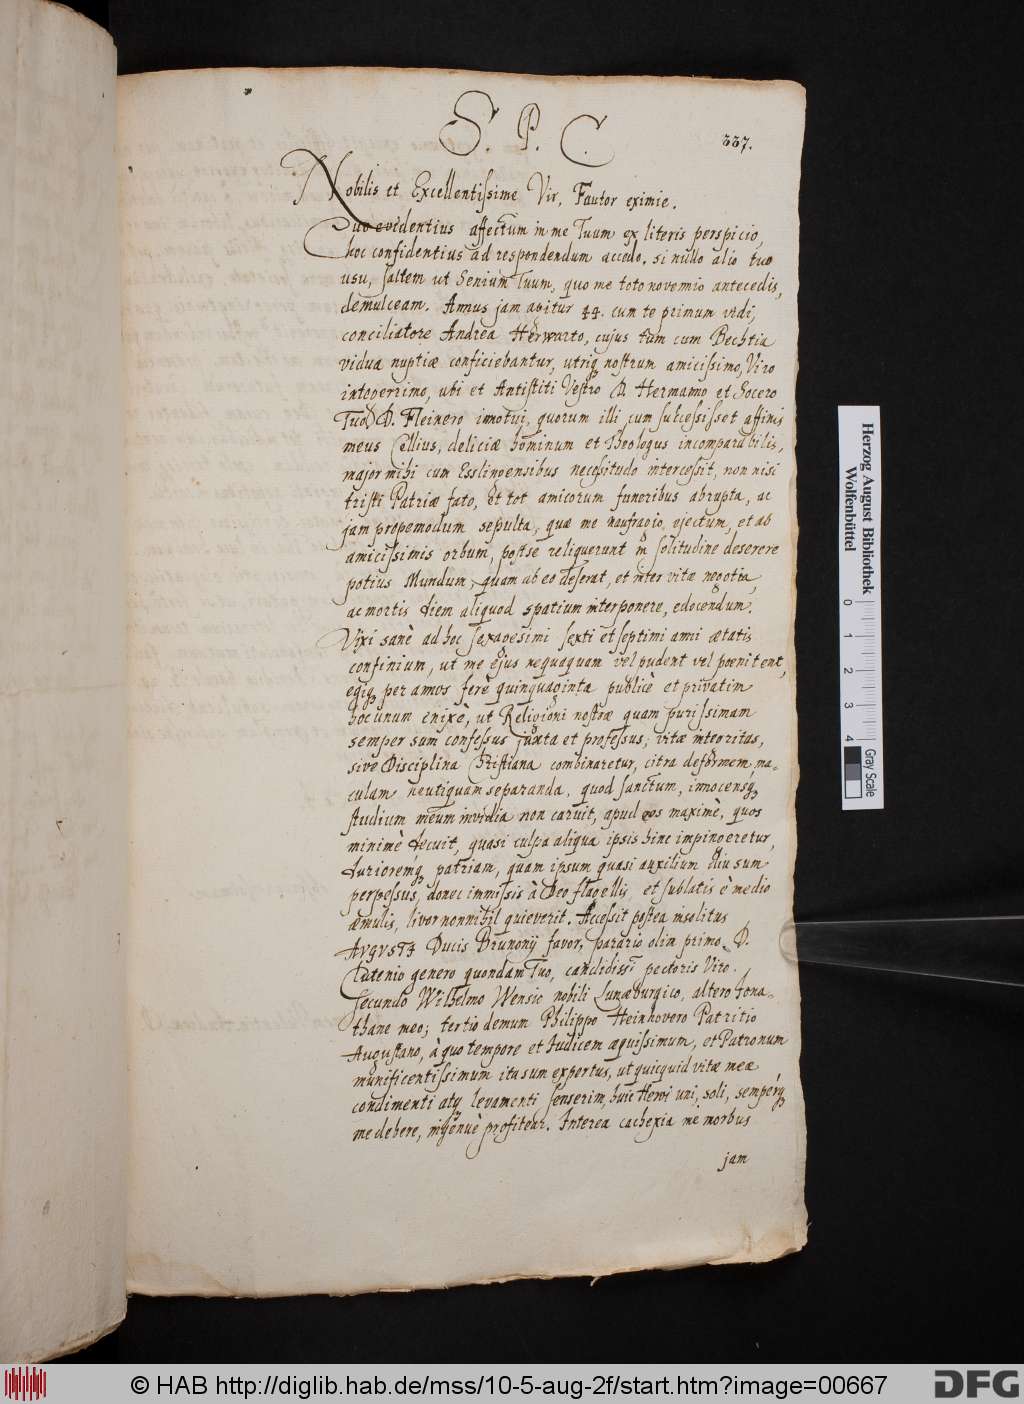 S. P. C.
337.
Nobilis et Excellentissime Vir, Fautor eximie.
Quo evidentius affectum in me Tuum ex literis perspicio,
hoc confidentius ad respondendum accedo. si nullo alio tuo
usu, saltem ut Senium Tuum, quo me toto novemio antecedis,
demulceam. Annus jam agitur 44. cum te primum vidi,
conciliatore Andrea Herwarto, cujus tum cum Bechtia
vidua nuptiæ conficiebantur, utriq nostrum amicissimo, Viro
integerrimo, ubi et Antistiti Vestro D. Hermanno et Socero
Tuo D. Fleinero innotui, quorum illi cum successisset affinis
meus Cellius, deliciæ hominum et Theologus incomparabilis,
major mihi cum Esslingensibus necessitudo intercessit, non nisi
tristi Patriæ fato, et tot amicorum funeribus abrupta, ac
jam propemodum sepulta, quæ me naufragio ejectum, et ab
amicissimis orbum, postse reliquerunt in solitudine deserere
potius Mundum, quam ab eo deserat, et inter vitæ negotia,
ac mortis diem aliquod spatium interponere, edocendum.
Vixi sanè ad hoc sexagesimi sexti et septimi anni ætatis
confinium, ut me ejus nequaquam vel pudent vel pœnitent,
egiq per annos ferè quinquaginta publicè et privatim
hoc unum enixè, ut Religioni nostræ quam purissimam
semper sum confessus juxta et professus, vitæ integritas,
sive Disciplina Christiana combinaretur, citra deformem ma-
culam neutiquam separanda, quod sanctum, innocensq
studium meum invidia non caruit, apud eos maximè, quos
minimè decuit, quasi culpa aliqua ipsis hinc impingeretur,
durioremq patriam, quam ipsum quasi auxilium diu sum
perpessus, donec immissis à Deo flagellis, et sublatis è medio
æmulis, livor nonnihil quieverit. Accessit postea insolitus
AVGVSTI Ducis Brunonij favor, parario olim primo D.
Lutenio genero quondam Tuo, candidiss. pectoris Viro.
secundo Wilhelmo Wensio nobili Lunæburgico, altero Iona-
thane meo; tertio demum Philippo Heinhovero Patritio
Augustano, à quo tempore et Iudicem æquissimum, et Patronum
munificentissimum ita sum expertus, ut quicquid vitæ meæ
condimenti atq levamenti senserim, huic Heroi uni, soli, semperq
me debere, ingenuè profitear. Interea cachexia me morbus
jam
Herzog August Bibliothek
Wolfenbüttel
0 1 2 3 4
Gray Scale
© HAB http://diglib.hab.de/mss/10-5-aug-2f/start.htm?image=00667
DFG